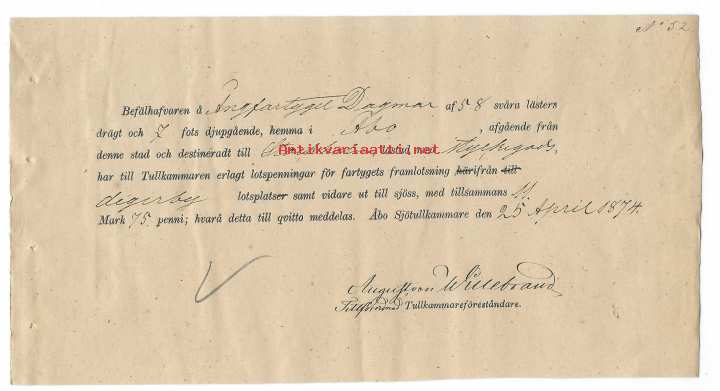 No 52
Befälhafvaren å Ångfartyget Dagmar af 58 svåra lästers
drägt och 7 fots djupgående, hemma i Åbo, afgående från
denne stad och destineradt till lastad med Styckegods,
Antikvariaatti.net
har till Tullkammaren erlagt lotspenningar för fartygets framlotsning härifrån till
degerby lotsplatser samt vidare ut till sjöss, med tillsammans 11
Mark 75 penni; hvarå detta till qvitto meddelas. Åbo Sjötullkammare den 25 April 1874.
August von Willebrand
Tillförordnad Tullkammareföreståndare.